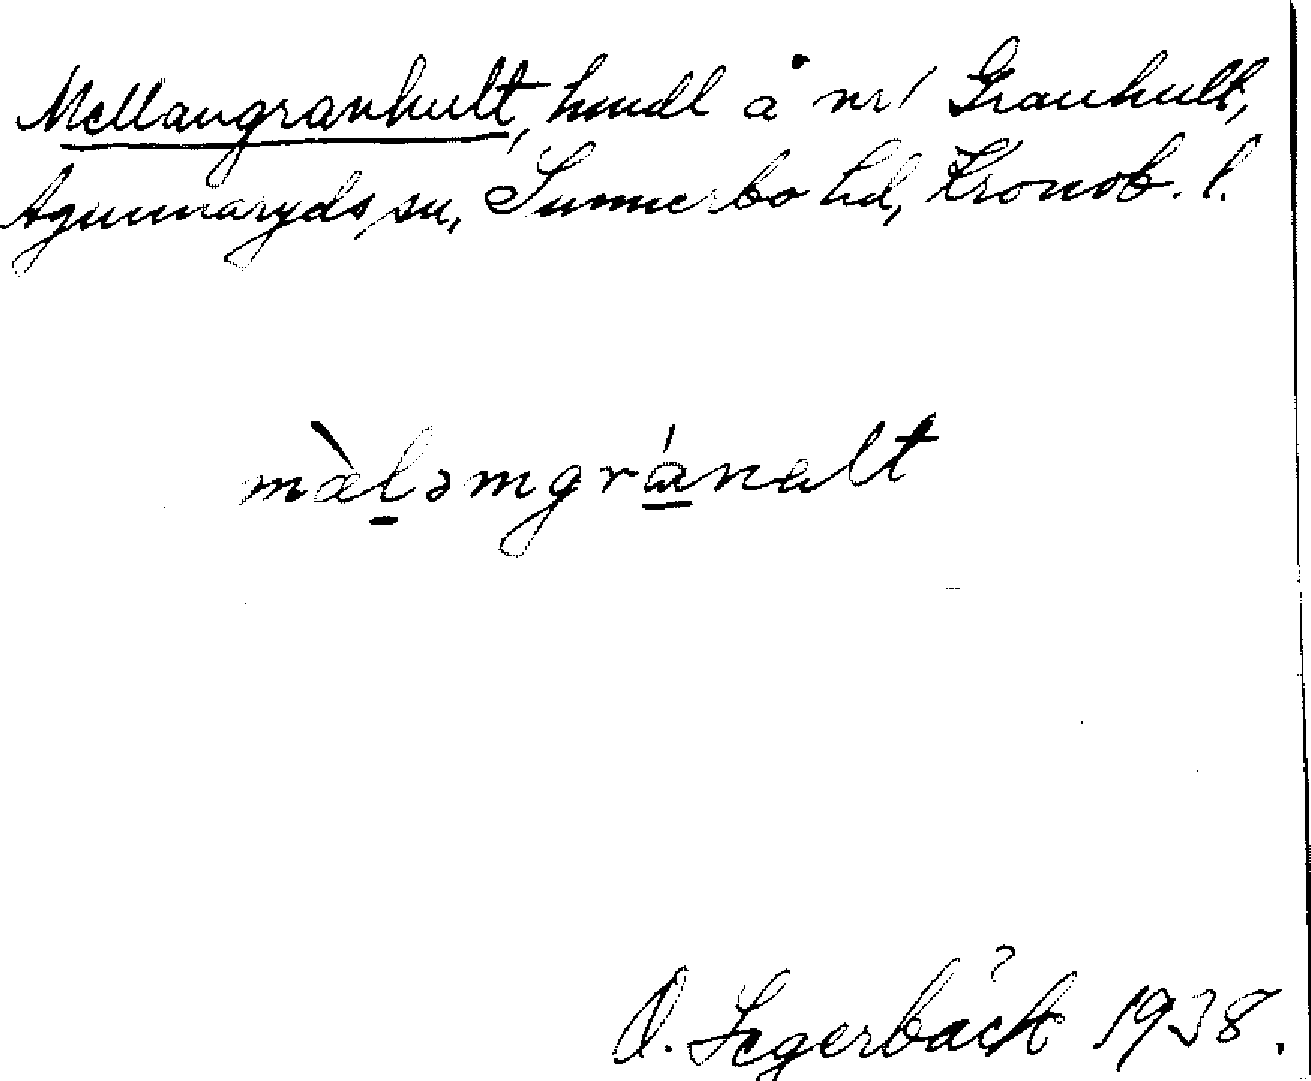 Mellangranhult, hmdl å nr 1 Granhult,
Agunnaryds sn, Sunnerbo hd, Kronob. l.
mæ̀l̠əmgrá̠nalt
O. Segerbäck 1938.